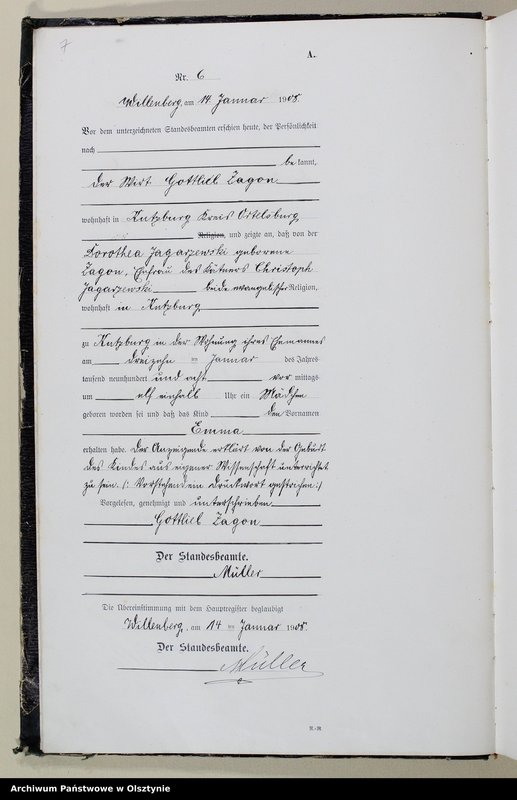 7
A.
Nr. 6
Willenberg, am 14 Januar 1908.
Vor dem unterzeichneten Standesbeamten erschien heute, der Persönlichkeit
nach
be kannt,
der Wirt Gottlieb Zagon
wohnhaft in Kutzburg Kreis Ortelsburg
Religion, und zeigte an, daß von der
Dorothea Jagarzewski geborene
Zagon, Ehefrau des Kätners Christoph
Jagarzewski beide evangelischer Religion,
wohnhaft in Kutzburg
zu Kutzburg in der Wohnung ihres Ehemannes
am dreizehn ten Januar des Jahres
tausend neunhundert und acht vor mittags
um elf einhalb Uhr ein Mädchen
geboren worden sei und daß das Kind den Vornamen
Emma
erhalten habe. Der Anzeigende erklärt von der Geburt
des Kindes aus eigener Wissenschaft unterrichtet
zu sein. (: Vorstehend ein Druckwort gestrichen :)
Vorgelesen, genehmigt und unterschrieben
Gottlieb Zagon
Der Standesbeamte.
Müller
Die Übereinstimmung mit dem Hauptregister beglaubigt
Willenberg, am 14 ten Januar 1908.
Der Standesbeamte.
Müller
Archiwum Państwowe w Olsztynie